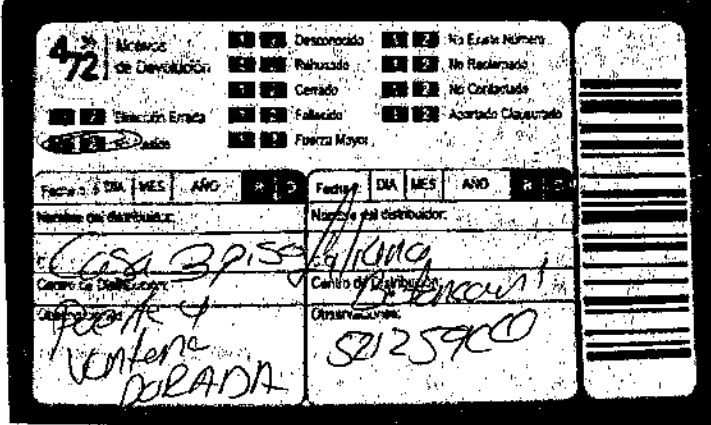 472 Motivos de Devolución
1 2 Desconocido
1 2 Rehusado
1 2 Cerrado
1 2 Fallecido
1 2 Fuerza Mayor
1 2 No Existe Número
1 2 No Reclamado
1 2 No Contactado
1 2 Apartado Clausurado
1 2 Dirección Errada
1 2 No Reside
Fecha 1: DIA MES AÑO R D
Nombre del distribuidor:
Casa 3 piso
Centro de Distribución:
Observaciones:
Puerta y
Ventana
DORADA
Fecha DIA MES AÑO R D
Nombre del distribuidor:
Centro de Distribución:
Betancourt
Observaciones: